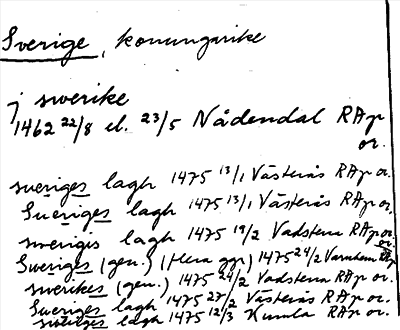 Sverige, konungarike
j swerike
1462 22/8 el. 23/5 Nådendal RAp
or.
sueriges lagh 1475 13/1 Västerås RAp or.
Sueriges lagh 1475 13/1 Västerås RAp or.
sweriges lagh 1475 19/2 Vadstena RAp or.
Sweriges (gen.) (flera ggr) 1475 24/2 Varnhem RAp or.
swerikes (gen.) 1475 24/2 Vadstena RAp or.
Sueriges lagh 1475 27/2 Västerås RAp or.
sueriges lagh 1475 12/3 Kumla RAp or.